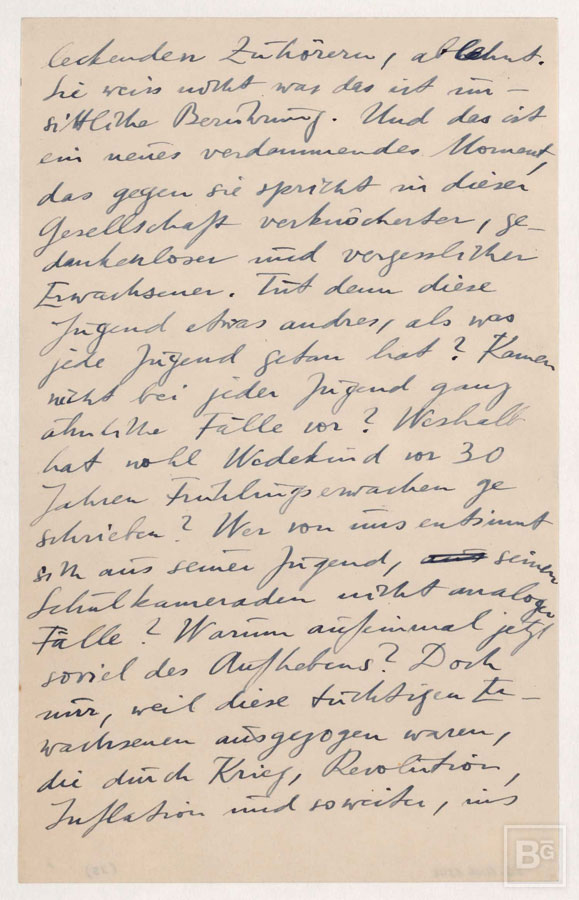 leckenden Zuhörern, ablehnt.
Sie weiss nicht was das ist un-
sittliche Berührung. Und das ist
ein neues verdammendes Moment,
das gegen sie spricht in dieser
Gesellschaft verknöcherter, ge-
dankenloser und vergesslicher
Erwachsener. Tut denn diese
Jugend etwas andres, als was
jede Jugend getan hat? Kamen
nicht bei jeder Jugend ganz
ähnliche Fälle vor? Weshalb
hat wohl Wedekind vor 30
Jahren Frühlingserwachen ge
schrieben? Wer von uns entsinnt
sich aus seiner Jugend, aus seinen
Schulkameraden nicht analoger
Fälle? Warum aufeinmal jetzt
soviel des Aufhebens? Doch
nur, weil diese tüchtigen Er-
wachsenen ausgezogen waren,
die durch Krieg, Revolution,
Inflation und soweiter, ins
BG